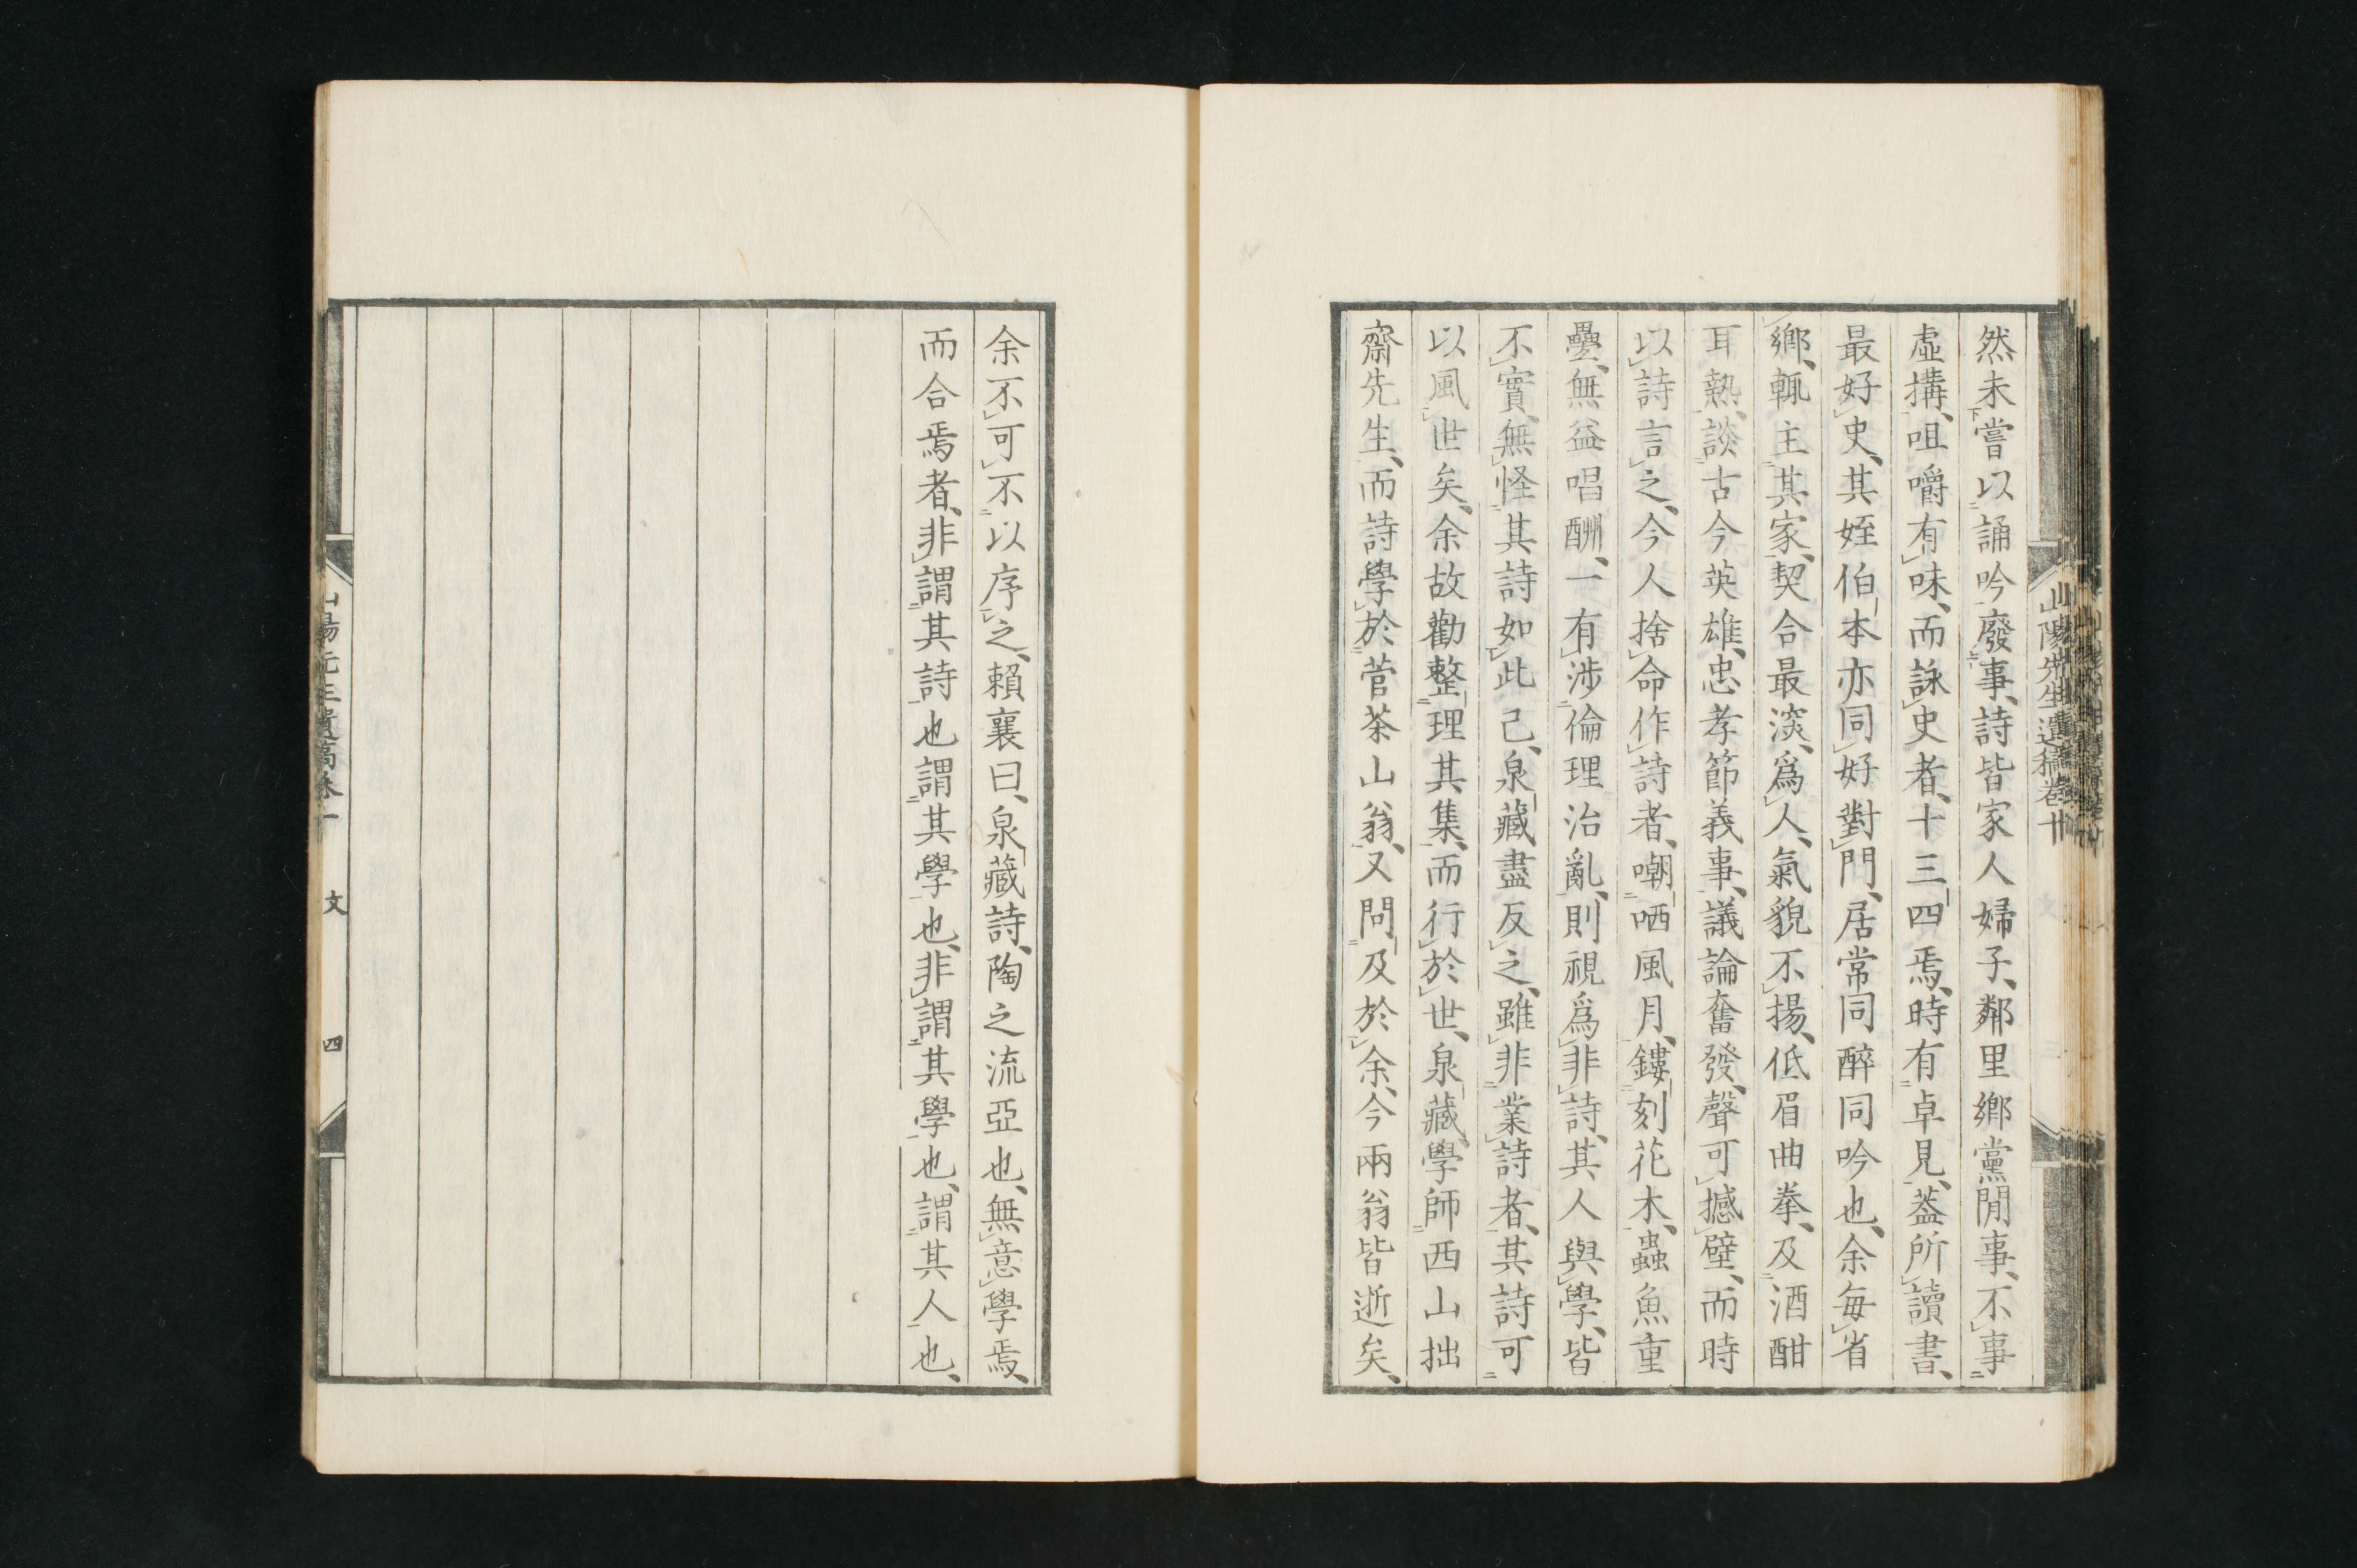 然未嘗以誦吟廢事、詩皆家人婦子、鄰里鄉黨閒事、不事
虛搆、咀嚼有味、而詠史者、十三四焉、時有卓見、蓋所讀書、
最好史、其姪伯本亦同好對門、居常同醉同吟也、余每省
鄉、輒主其家、契合最深、爲人、氣貌不揚、低眉曲拳、及酒酣
耳熱、談古今英雄、忠孝節義事、議論奮發、聲可撼壁、而時
以詩言之、今人捨命作詩者、嘲哂風月、鏤刻花木、蟲魚重
疊、無益唱酬、一有涉倫理治亂、則視爲非詩、其人與學、皆
不實、無怪其詩如此已、泉藏盡反之、雖非業詩者、其詩可
以風世矣、余故勸整理其集、而行於世、泉藏、學師西山拙
齋先生、而詩學於菅茶山翁、又問及於余、今兩翁皆逝矣、
山陽先生遺稿卷十
余不可不以序之、賴襄曰、泉藏詩、陶之流亞也、無意學焉、
而合焉者、非謂其詩也謂其學也、非謂其學也、謂其人也、
文
四